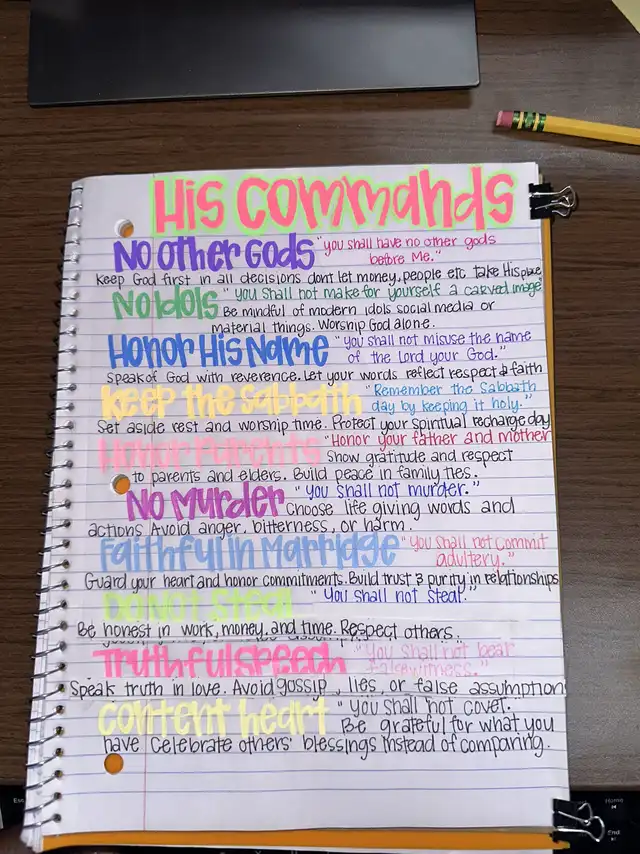 His Commands
No Other Gods "you shall have no other gods
before Me."
Keep God first in all decisions dont let money, people etc take His place
No Idols "you shall not make for yourself a carved image"
Be mindful of modern idols social media or
material things. Worship God alone.
Honor His Name "you shall not misuse the name
of the Lord your God."
Speak of God with reverence. Let your words reflect respect & faith
Keep the Sabbath "Remember the Sabbath
day by keeping it holy."
Set aside rest and worship time. Protect your spiritual recharge day
Honor Parents "Honor your father and mother
Show gratitude and respect
to parents and elders. Build peace in family ties.
No Murder "you shall not murder."
Choose life giving words and
actions Avoid anger, bitterness, or harm.
Faithful in Marridge "you shall not commit
adultery."
Guard your heart and honor commitments. Build trust & purity in relationships
Do Not Steal "you shall not steal."
Be honest in work, money, and time. Respect others.
Truthful speech "you shall not bear
false witness."
Speak truth in love. Avoid gossip, lies, or false assumption
content heart "you shall not covet."
Be grateful for what you
have Celebrate others' blessings instead of comparing.
Esc
Home
End